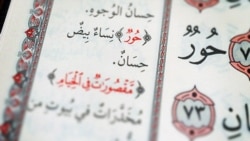 حِسانُ الوُجوهِ.
﴿حُورٌ﴾ نِساءٌ بِيضٌ
حِسَانٌ.
﴿مَّقْصُورَٰتٌ فِي ٱلْخِيَامِ﴾
مُخَدَّراتٌ في بُيوتٍ من
حُورٌ
٧٣